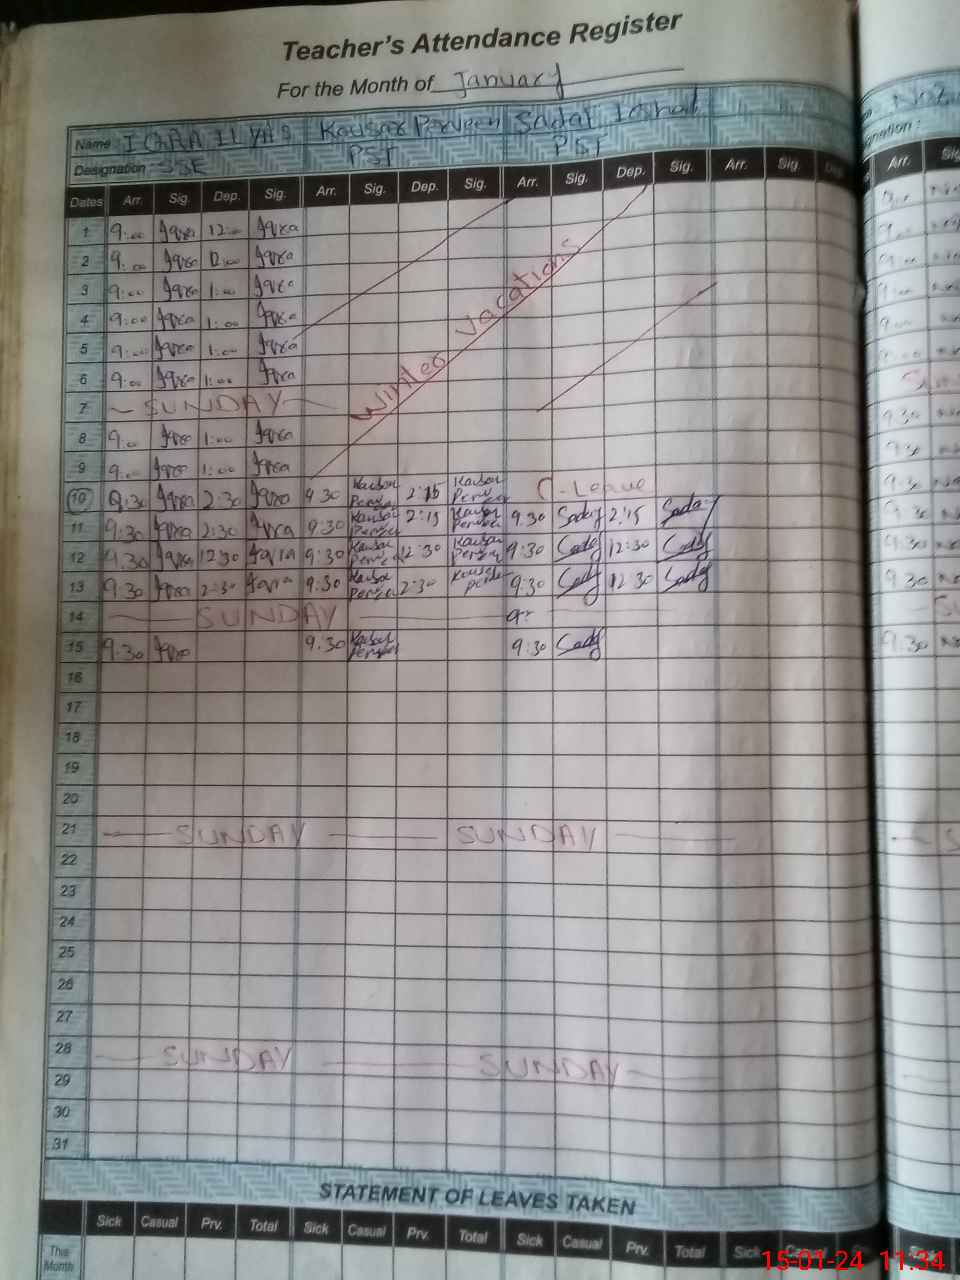 Teacher's Attendance Register
For the Month of January
Name : IQRA ILYAS Kausar Perveen Sadaf
Designation : SSE PST PST
Dates Arr. Sig. Dep. Sig. Arr. Sig. Dep. Sig. Arr. Sig. Dep. Sig. Arr. Sig. Dep.
1 9:00 Iqra 12:00 Iqra
2 9:00 Iqra 12:00 Iqra
3 9:00 Iqra 1:00 Iqra
4 9:00 Iqra 1:00 Iqra
5 9:00 Iqra 1:00 Iqra
6 9:00 Iqra 1:00 Iqra
Winter Vacations
7 SUNDAY
8 9:00 Iqra 1:00 Iqra
9 9:00 Iqra 1:00 Iqra
10 9:30 Iqra 2:30 Iqra 9:30 Kausar Perveen 2:15 Kausar Perveen C-Leave
11 9:30 Iqra 2:30 Iqra 9:30 Kausar Perveen 2:15 Kausar Perveen 9:30 Sadaf 2:15 Sadaf
12 9:30 Iqra 12:30 Iqra 9:30 Kausar Perveen 12:30 Kausar Perveen 9:30 Sadaf 12:30 Sadaf
13 9:30 Iqra 2:30 Iqra 9:30 Kausar Perveen 2:30 Kausar Perveen 9:30 Sadaf 12:30 Sadaf
14 SUNDAY
15 9:30 Iqra 9:30 Kausar Perveen 9:30 Sadaf
16
17
18
19
20
21 SUNDAY SUNDAY
22
23
24
25
26
27
28 SUNDAY SUNDAY
29
30
31
STATEMENT OF LEAVES TAKEN
Sick Casual Prv. Total Sick Casual Prv. Total Sick Casual Prv. Total Sick Casual
This Month
15-01-24 11:34